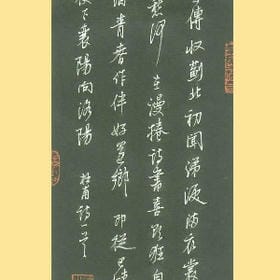 傳收薊北初聞涕淚滿衣裳
愁何在漫捲詩書喜欲狂白
青春作伴好還鄉即從巴峽
下襄陽向洛陽 杜甫詩一首